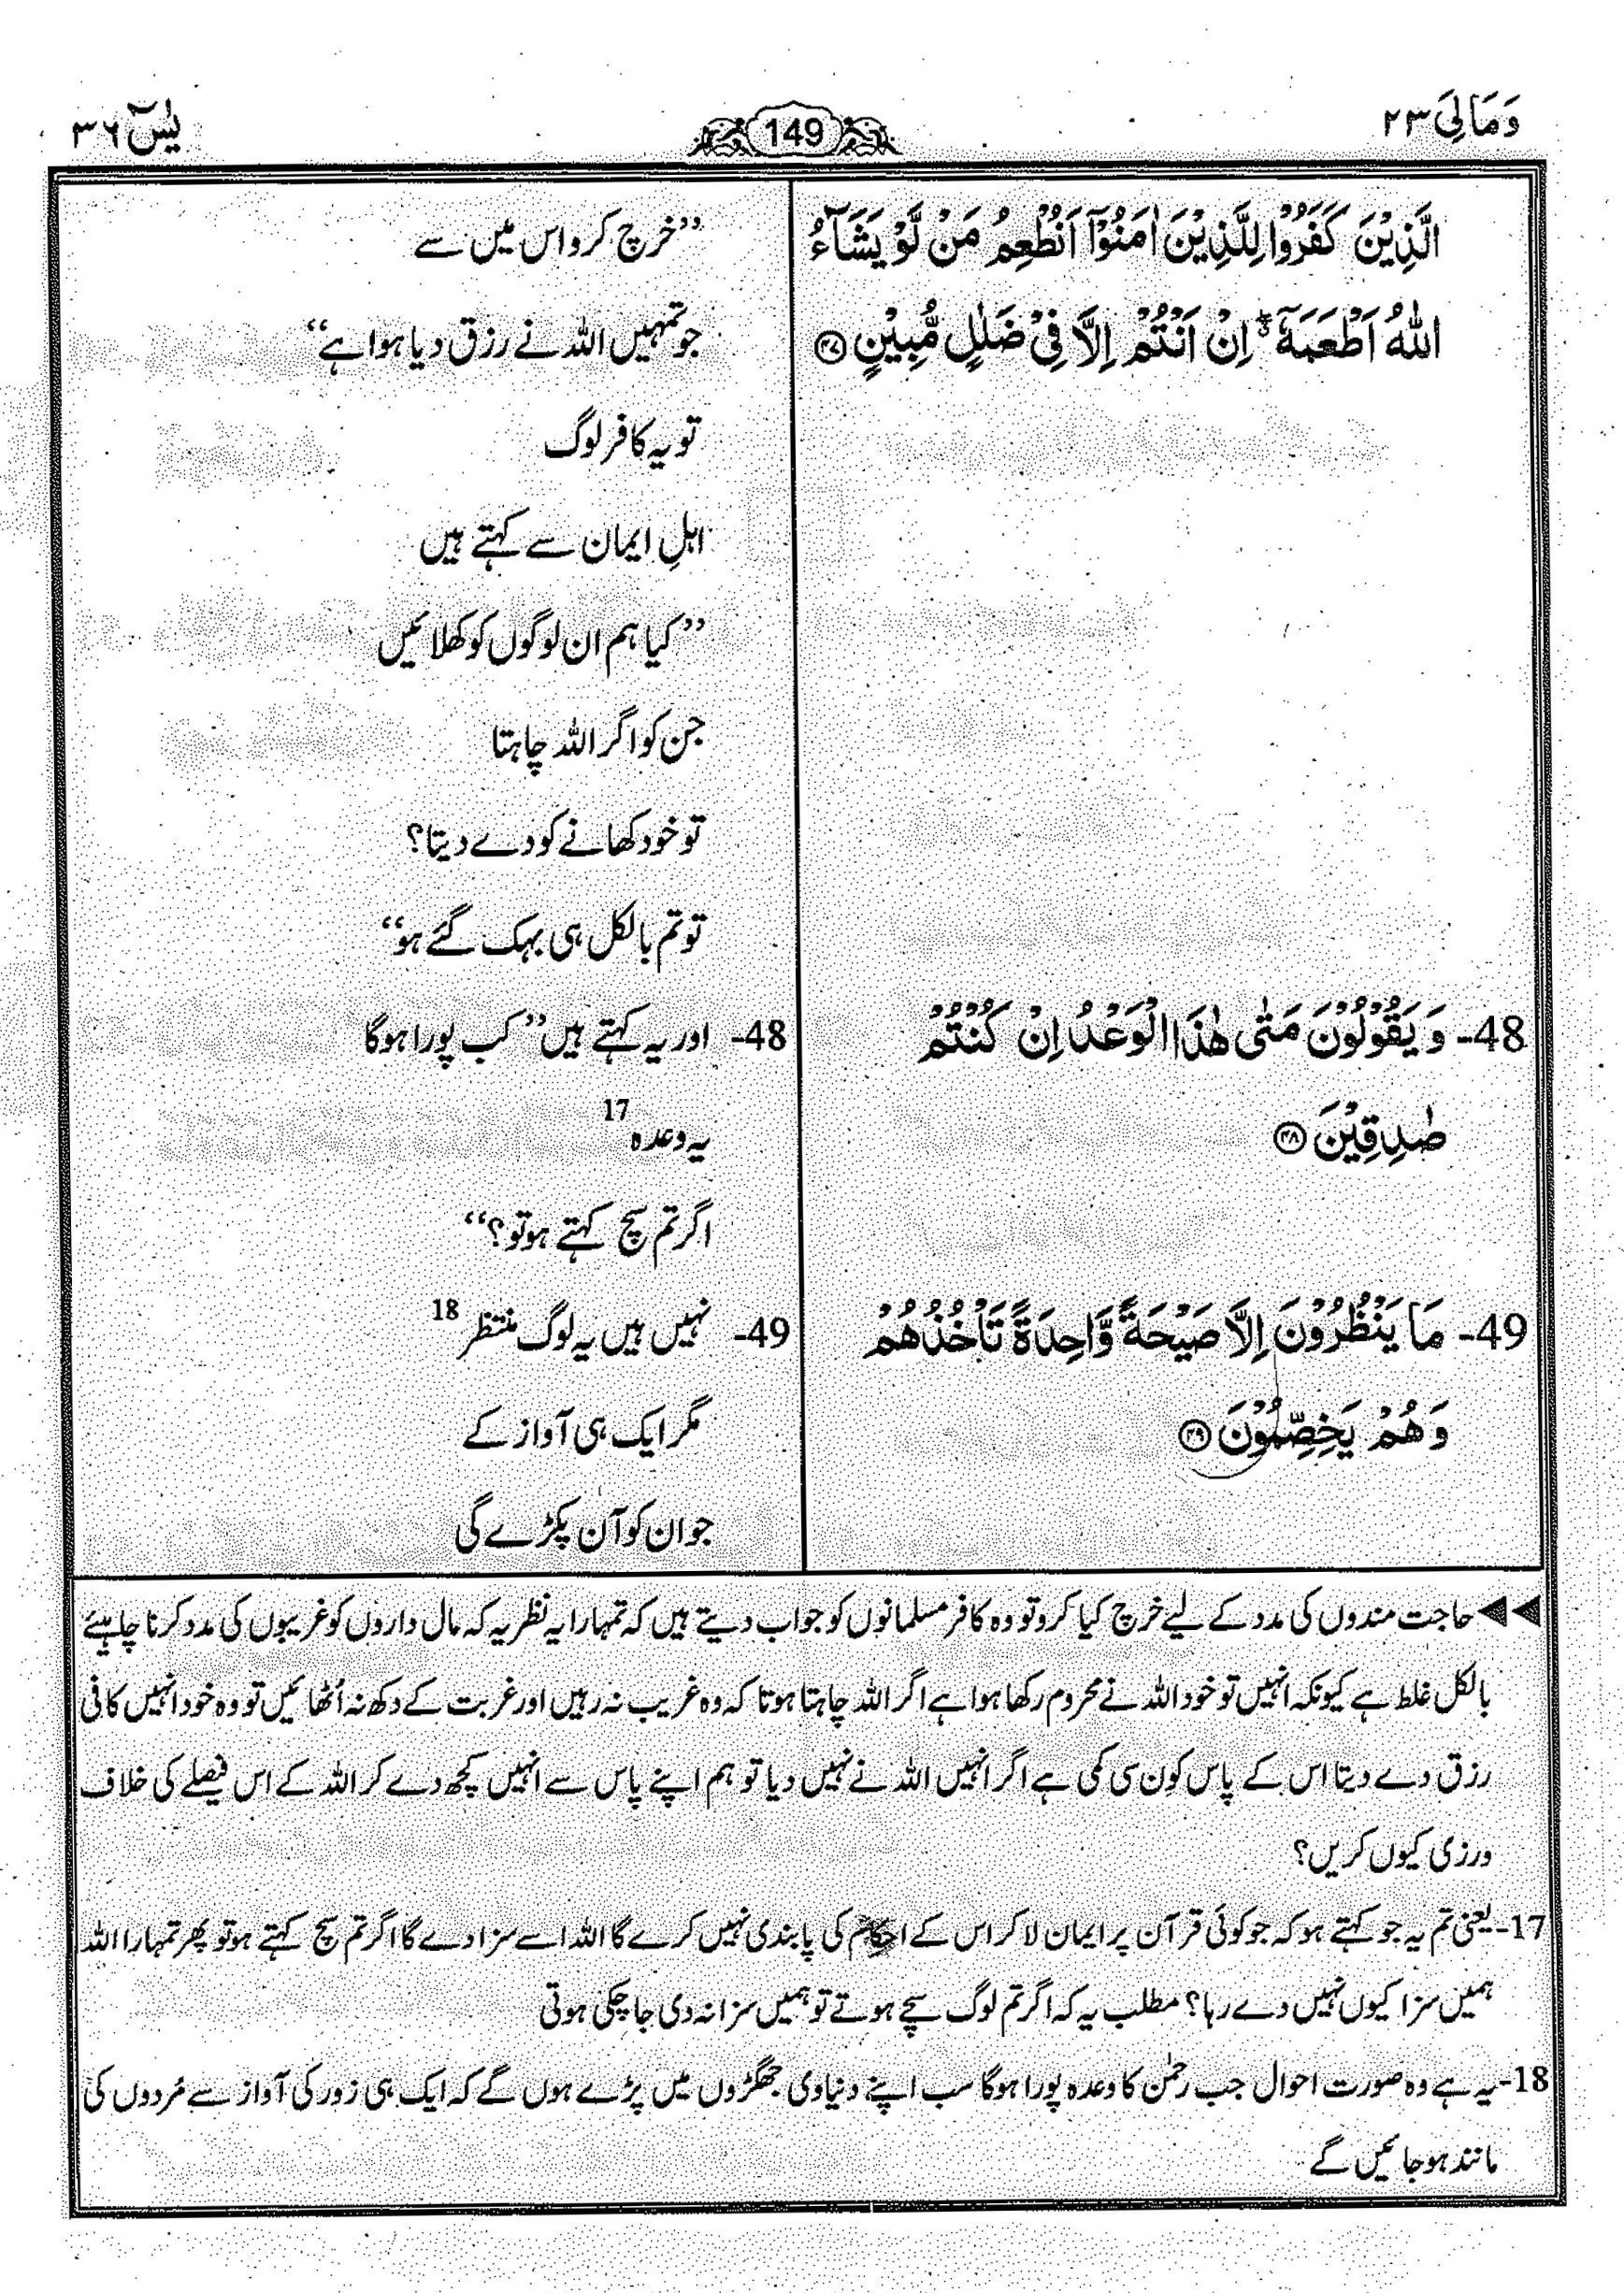 وَمَالِیَ ۲۳
149
یٰسٓ ۳۶
الَّذِيْنَ كَفَرُوْا لِلَّذِيْنَ اٰمَنُوْۤا اَنُطْعِمُ مَنْ لَّوْ يَشَآءُ
اللّٰهُ اَطْعَمَهٗۤ ۖۗ اِنْ اَنْتُمْ اِلَّا فِيْ ضَلٰلٍ مُّبِيْنٍ ۴۷
48- وَ يَقُوْلُوْنَ مَتٰى هٰذَا الْوَعْدُ اِنْ كُنْتُمْ
صٰدِقِيْنَ ۴۸
49- مَا يَنْظُرُوْنَ اِلَّا صَيْحَةً وَّاحِدَةً تَاْخُذُهُمْ
وَهُمْ يَخِصِّمُوْنَ ۴۹
”خرچ کرو اس میں سے
جو تمہیں اللہ نے رزق دیا ہوا ہے“
تو یہ کافر لوگ
اہلِ ایمان سے کہتے ہیں
”کیا ہم ان لوگوں کو کھلائیں
جن کو اگر اللہ چاہتا
تو خود کھانے کو دے دیتا؟
تو تم بالکل ہی بہک گئے ہو“
48- اور یہ کہتے ہیں ”کب پورا ہوگا
یہ وعدہ 17
اگر تم سچ کہتے ہو تو؟“
49- نہیں ہیں یہ لوگ منتظر 18
مگر ایک ہی آواز کے
جو ان کو آن پکڑے گی
◀◀ حاجت مندوں کی مدد کے لیے خرچ کیا کرو تو وہ کافر مسلمانوں کو جواب دیتے ہیں کہ تمہارا یہ نظریہ کہ مال داروں کو غریبوں کی مدد کرنا چاہیئے
بالکل غلط ہے کیونکہ انہیں تو خود اللہ نے محروم رکھا ہوا ہے اگر اللہ چاہتا ہوتا کہ وہ غریب نہ رہیں اور غربت کے دکھ نہ اُٹھائیں تو وہ خود انہیں کافی
رزق دے دیتا اس کے پاس کون سی کمی ہے اگر انہیں اللہ نے نہیں دیا تو ہم اپنے پاس سے انہیں کچھ دے کر اللہ کے اس فیصلے کی خلاف
ورزی کیوں کریں؟
17- یعنی تم یہ جو کہتے ہو کہ جو کوئی قرآن پر ایمان لا کر اس کے احکام کی پابندی نہیں کرے گا اللہ اسے سزا دے گا اگر تم سچ کہتے ہو تو پھر تمہارا اللہ
ہمیں سزا کیوں نہیں دے رہا؟ مطلب یہ کہ اگر تم لوگ سچے ہوتے تو ہمیں سزا نہ دی جا چکی ہوتی
18- یہ ہے وہ صورت احوال جب رحمٰن کا وعدہ پورا ہوگا سب اپنے دنیاوی جھگڑوں میں پڑے ہوں گے کہ ایک ہی زور کی آواز سے مُردوں کی
مانند ہو جائیں گے